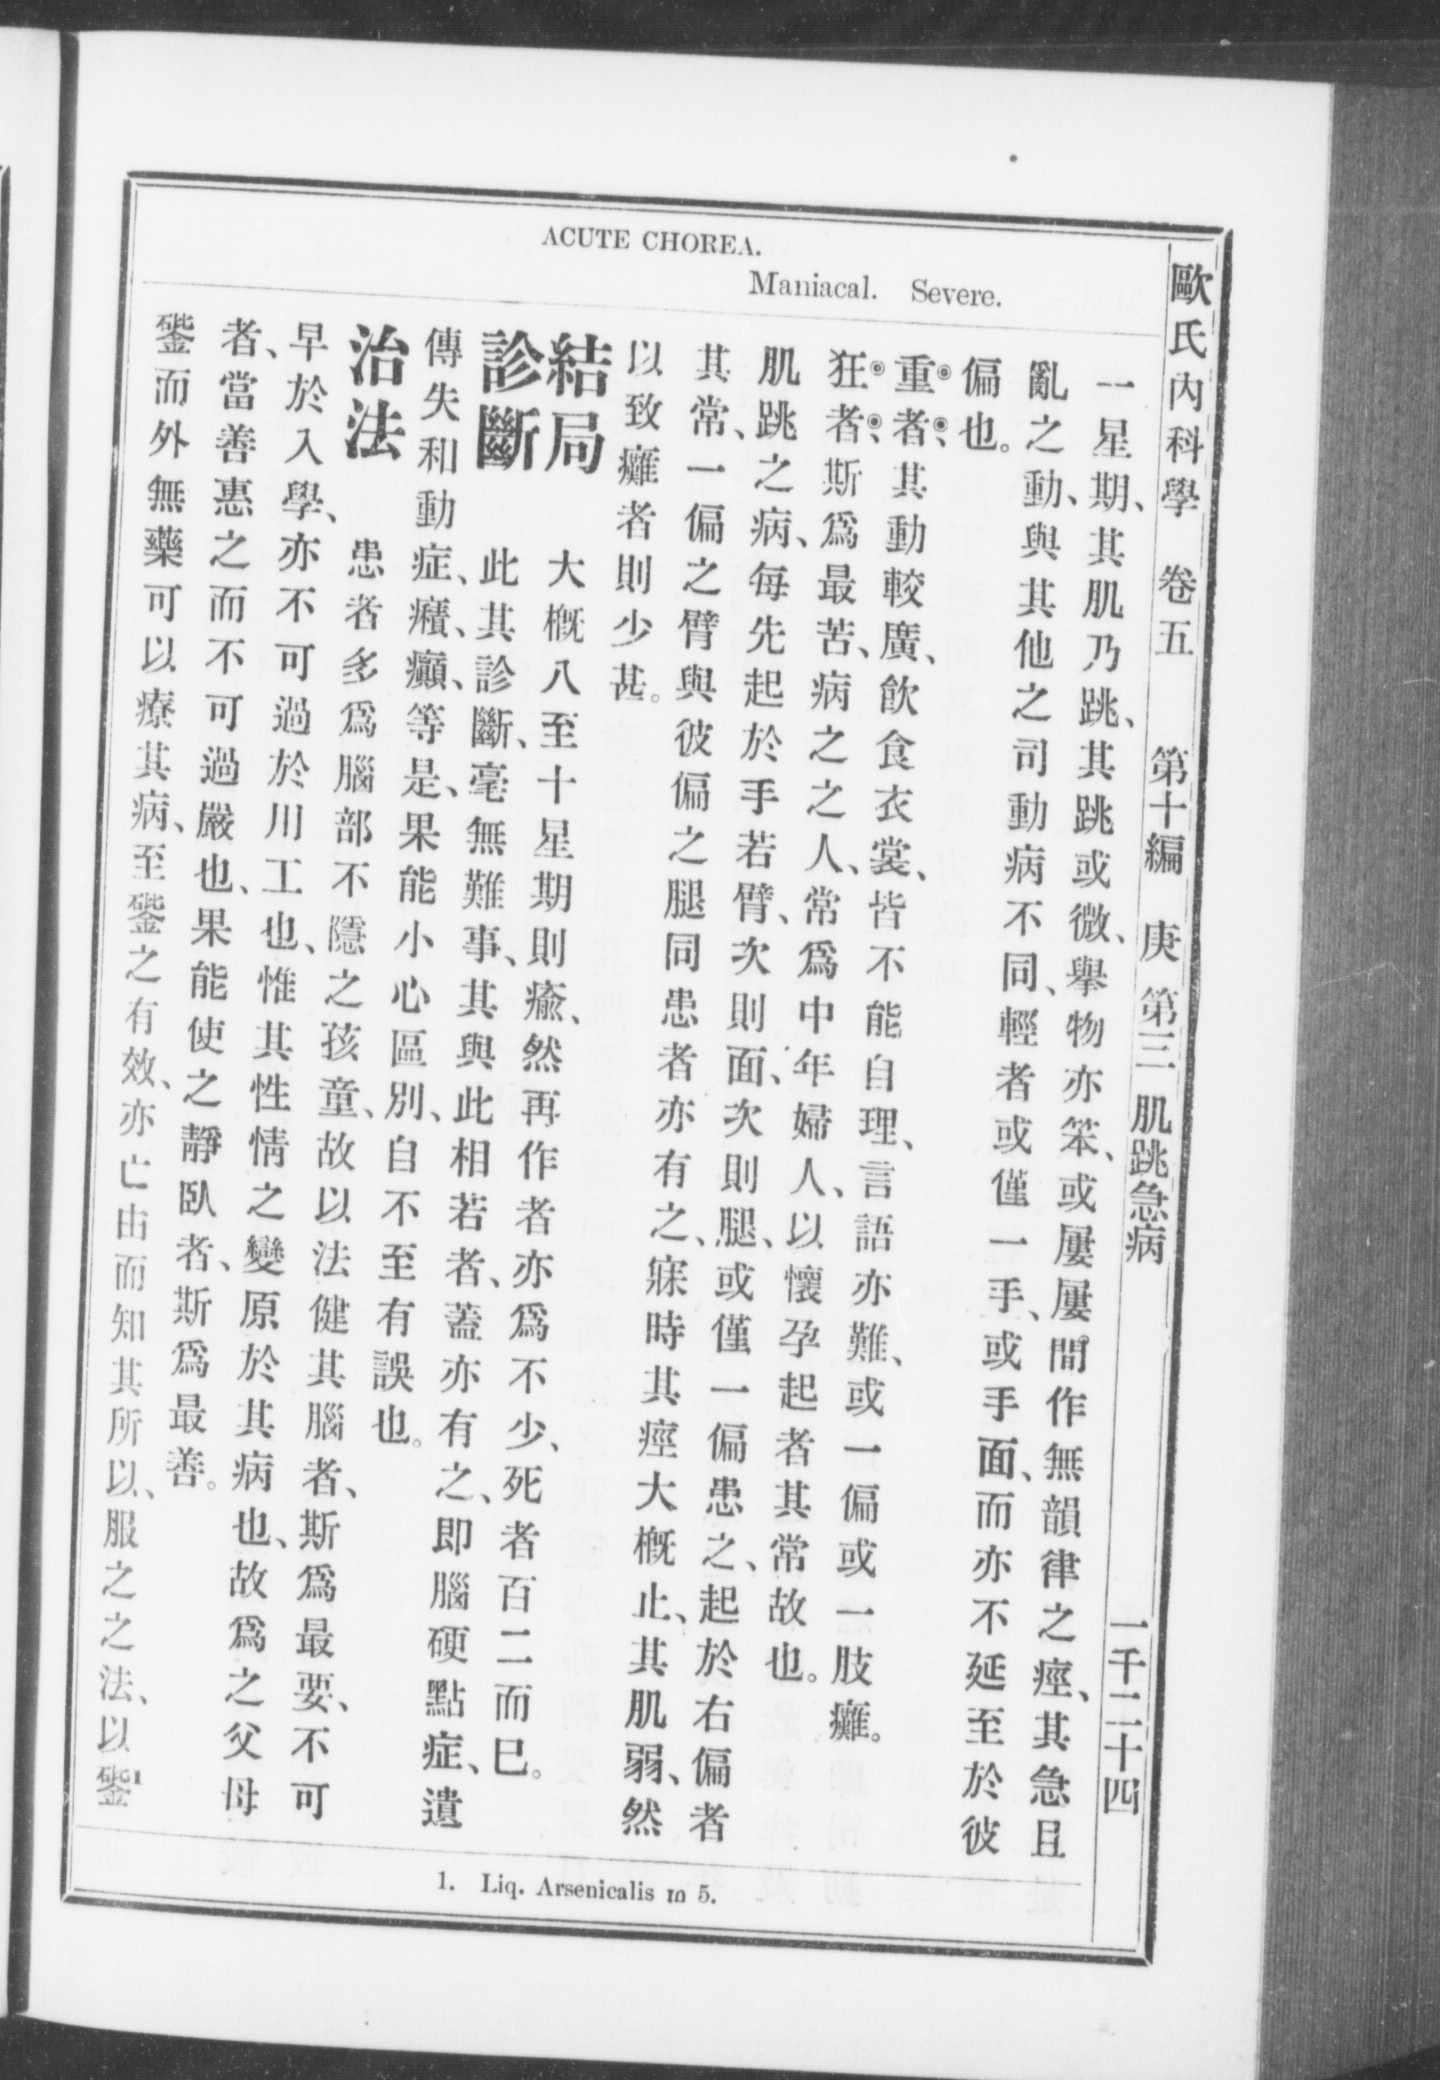 ACUTE CHOREA.
Maniacal. Severe.
歐氏內科學 卷五 第十編 庚 第三 肌跳急病 一千二十四
一星期、其肌乃跳、其跳或微、舉物亦笨、或屢屢間作無韻律之痙、其急且
亂之動、與其他之司動病不同、輕者或僅一手、或手面、而亦不延至於彼
偏也。
重者、其動較廣、飲食衣裳、皆不能自理、言語亦難、或一偏或一肢癱。
狂者、斯爲最苦、病之之人、常爲中年婦人、以懷孕起者其常故也。
肌跳之病、每先起於手若臂、次則面、次則腿、或僅一偏患之、起於右偏者
其常、一偏之臂與彼偏之腿同患者亦有之、寐時其痙大概止、其肌弱、然
以致癱者則少甚。
結局 大概八至十星期則瘉、然再作者亦爲不少、死者百二而已。
診斷 此其診斷、毫無難事、其與此相若者、蓋亦有之、即腦硬點症、遺
傳失和動症、癔癲、等是、果能小心區別、自不至有誤也。
治法 患者多爲腦部不隱之孩童、故以法健其腦者、斯爲最要、不可
早於入學、亦不可過於川工也、惟其性情之變原於其病也、故爲之父母
者、當善惠之而不可過嚴也、果能使之靜臥者、斯爲最善。
鎜而外無藥可以療其病、至鎜之有效、亦亡由而知其所以、服之之法、以鎜1
1. Liq. Arsenicalis ɱ 5.